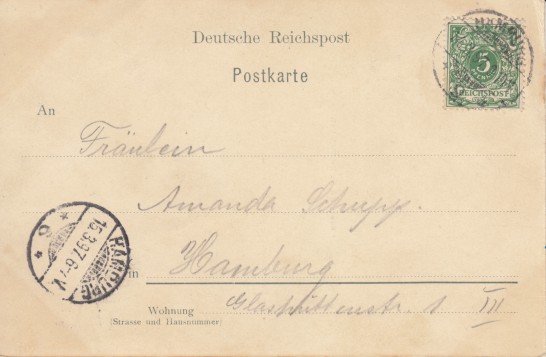 Deutsche Reichspost
Postkarte
5
REICHSPOST
An
Fräulein
Amanda Schupp.
in Hamburg
Wohnung Glashüttenstr. 1 III
(Strasse und Hausnummer)
HAMBURG
15.3.97.6-7V.
* 9 *